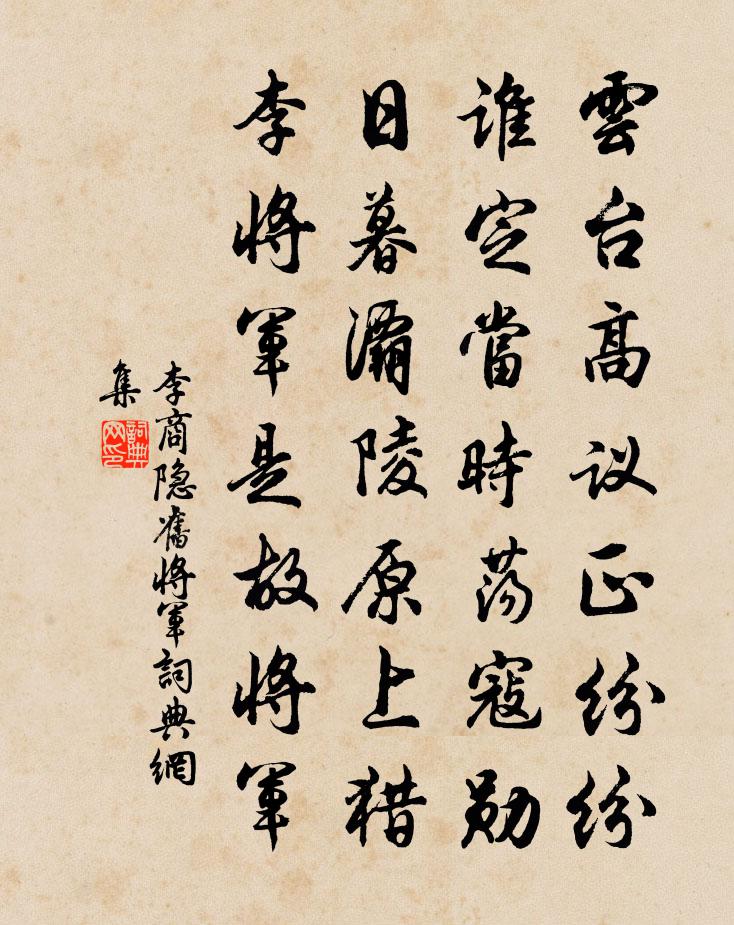 雲台高议正纷纷
誰定當時荡寇勋
日暮灞陵原上猎
李将軍是故将軍
李商隐舊将軍詞典網
集
詞典
网印